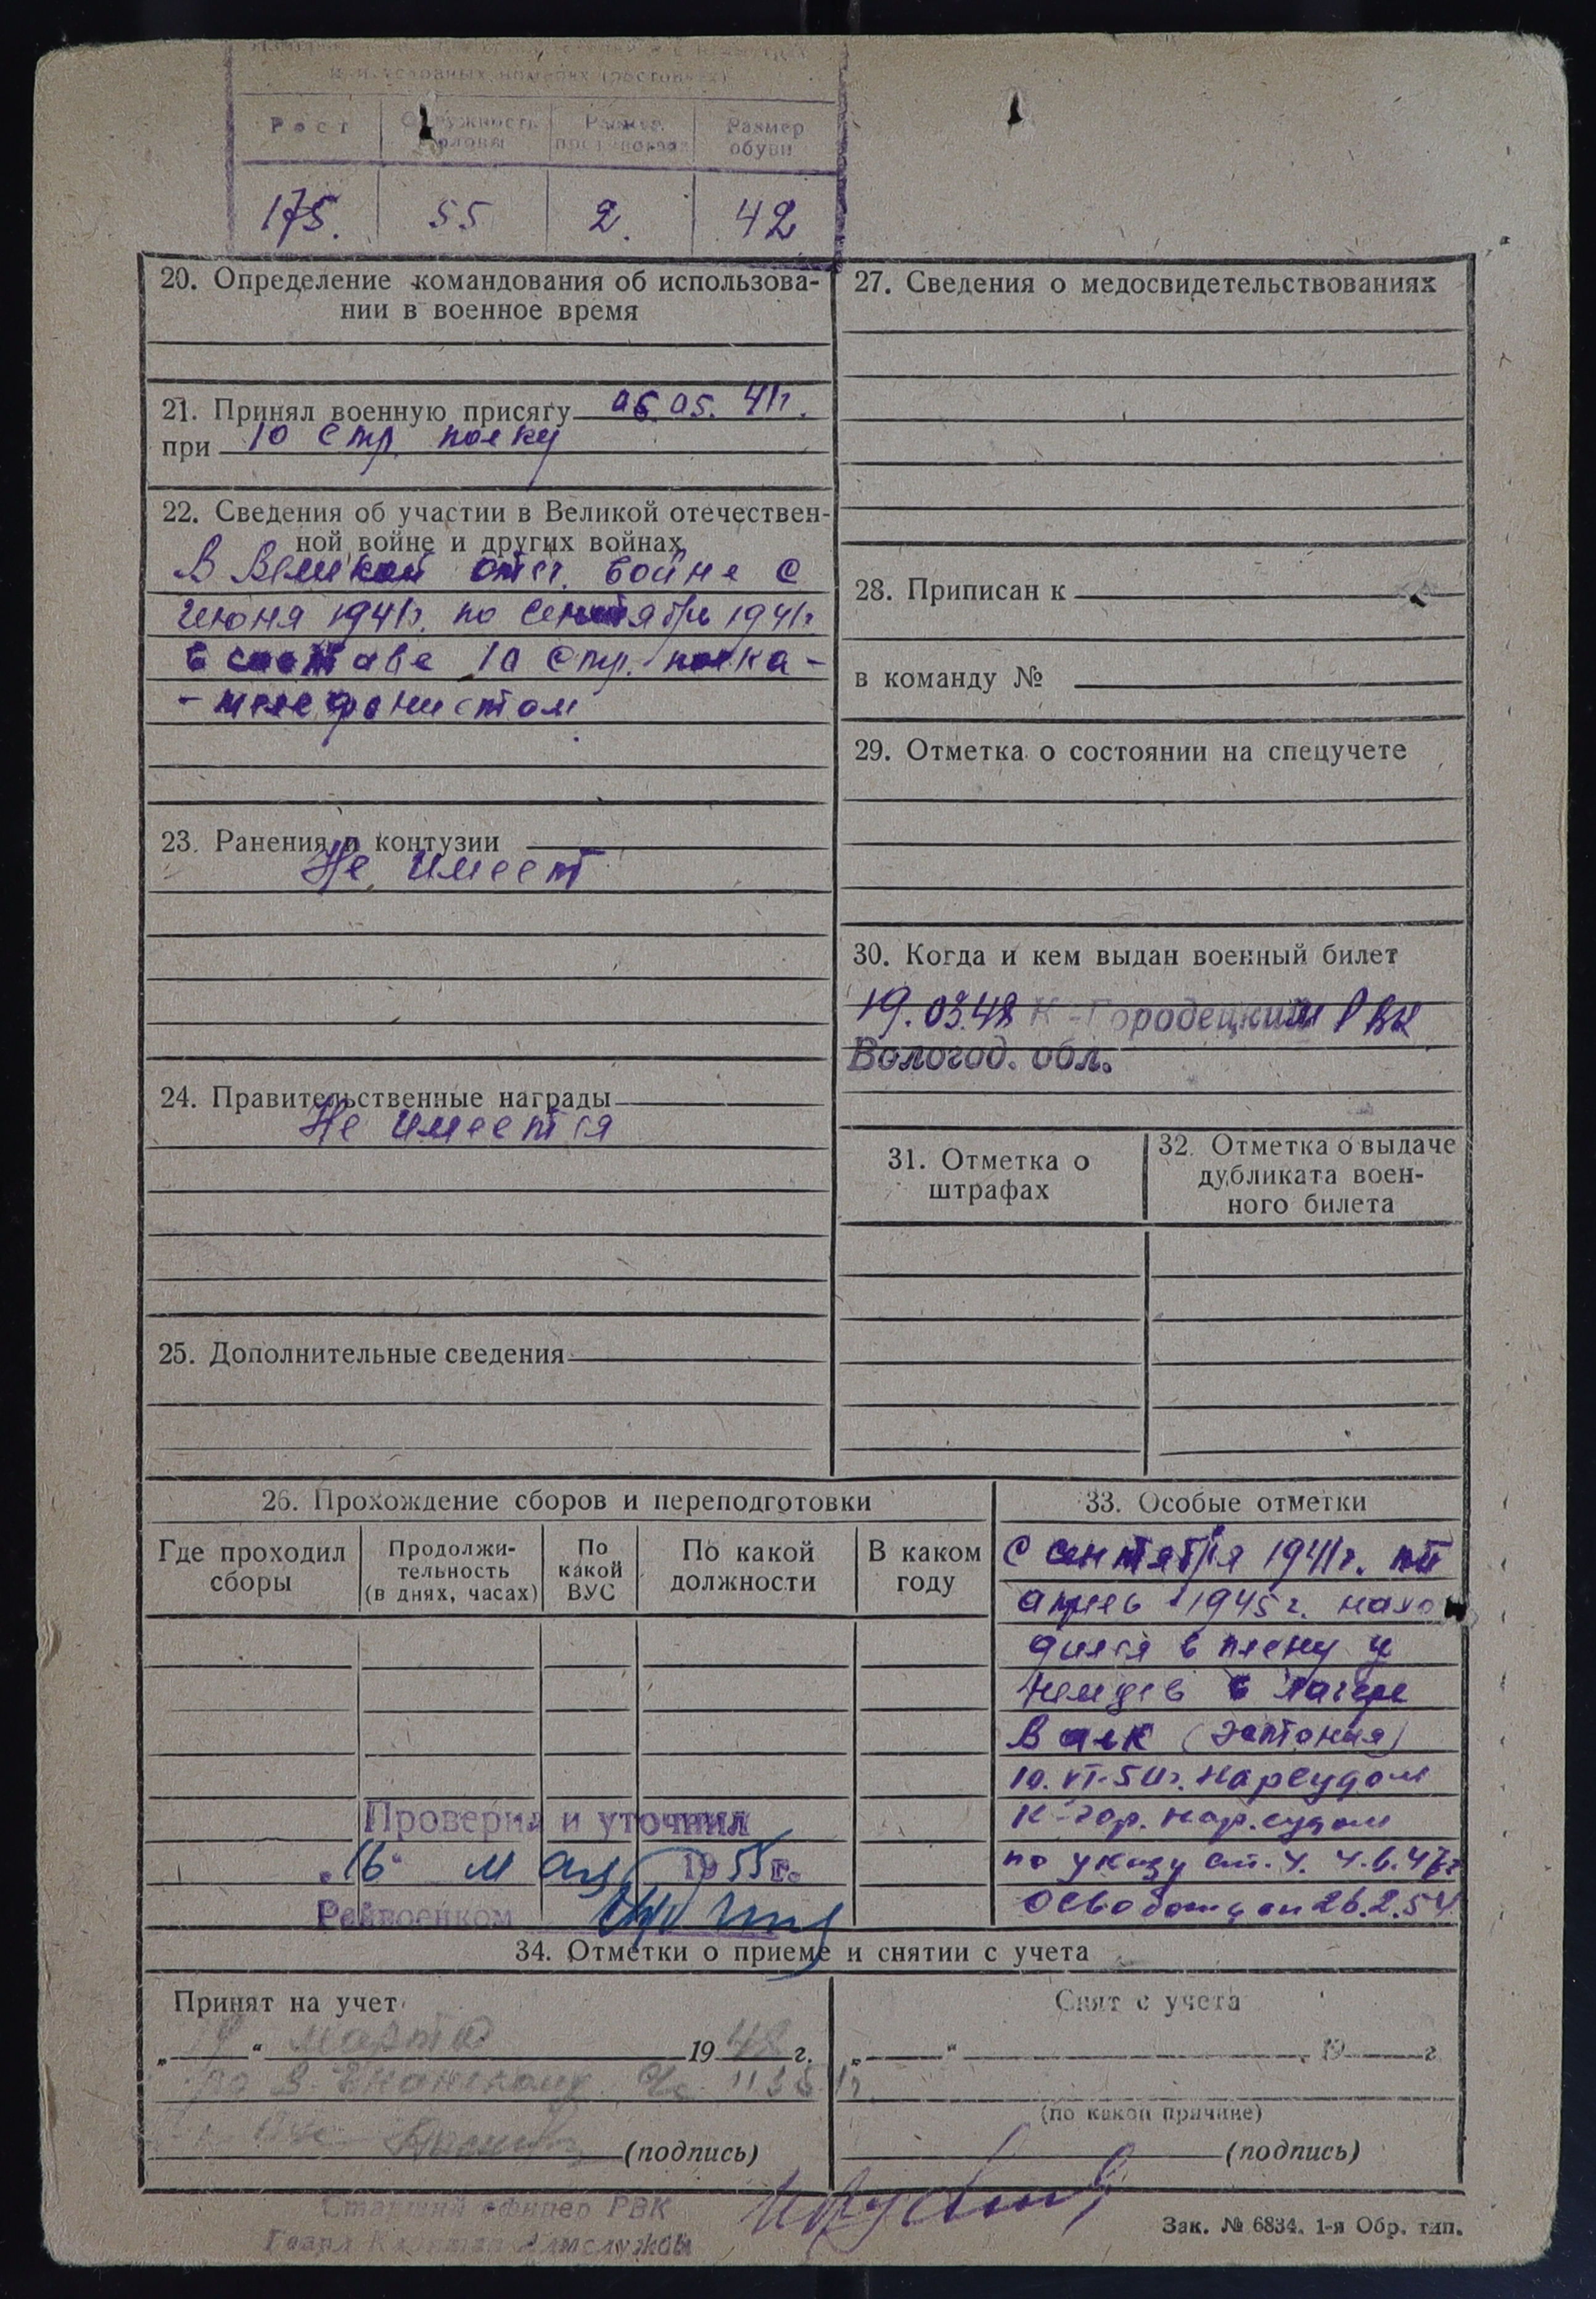 и условных номерах (ростовках)
Рост
Окружность головы
Размер
Размер обуви
175.
55
2.
42
20. Определение командования об использова-
нии в военное время
21. Принял военную присягу 06.05. 41г.
при 10 стр. полку
22. Сведения об участии в Великой отечествен-
ной войне и других войнах
В Великой отеч. войне с
июня 1941г. по сентябрь 1941г
в составе 10 стр. полка -
- телефонистом
23. Ранения и контузии
Не имеет
24. Правительственные награды
Не имеется
25. Дополнительные сведения
27. Сведения о медосвидетельствованиях
28. Приписан к
в команду №
29. Отметка о состоянии на спецучете
30. Когда и кем выдан военный билет
19.03.48 К-Городецким РВК
Вологод. обл.
31. Отметка о
штрафах
32. Отметка о выдаче
дубликата воен-
ного билета
26. Прохождение сборов и переподготовки
Где проходил
сборы
Продолжи-
тельность
(в днях, часах)
По
какой
ВУС
По какой
должности
В каком
году
Проверил и уточнил
„16“ мая 1955г.
Райвоенком
33. Особые отметки
С сентября 1941г. по
апрель 1945г. нахо
дился в плену у
немцев в лагере
Валк (Эстония)
10.VI-50г. Нарсудом
К-Гор. нар.судом
по указу ст. 4. 4.6.47г
Освобожден 26.2.54
34. Отметки о приеме и снятии с учета
Принят на учет
„19“ марта 1948 г.
(подпись)
Снят с учета
„ “ 19 г
(по какой причине)
(подпись)
Старший офицер РВК
Гвард Капитан Админслужбы
Зак. № 6834. 1-я Обр. тип.